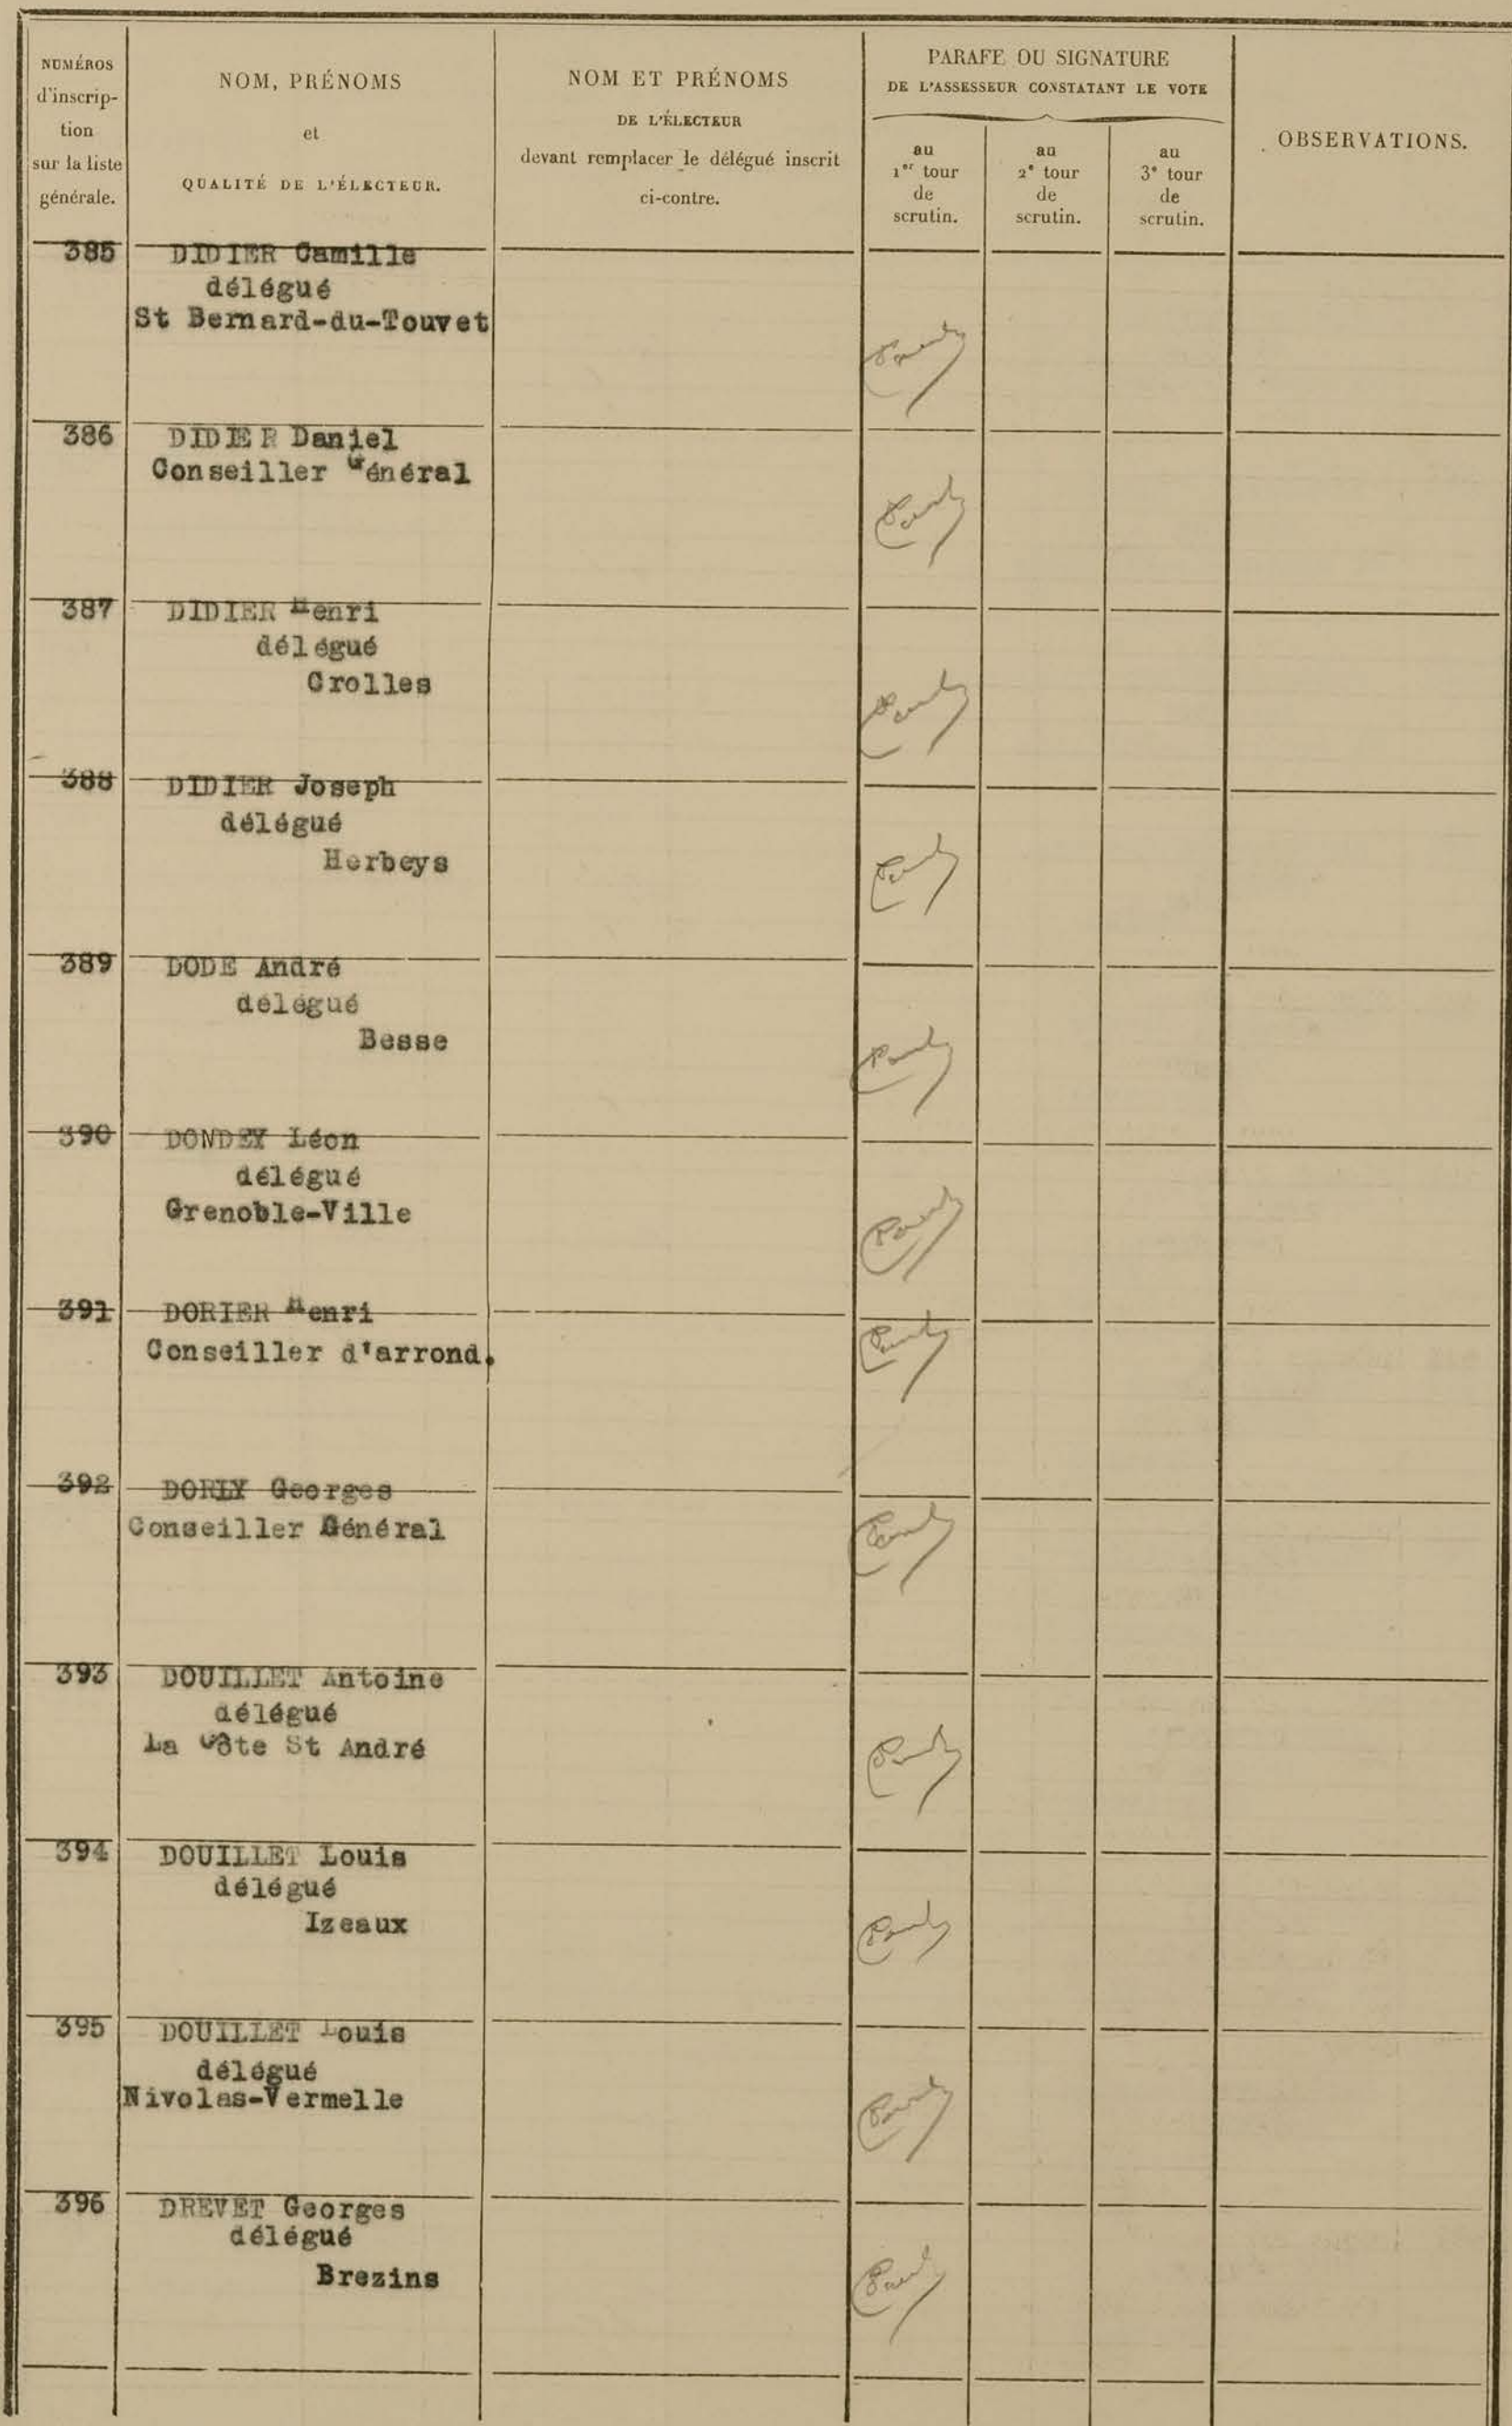 NUMÉROS
d'inscrip-
tion
sur la liste
générale.
NOM, PRÉNOMS
et
QUALITÉ DE L'ÉLECTEUR.
NOM ET PRÉNOMS
DE L'ÉLECTEUR
devant remplacer le délégué inscrit
ci-contre.
PARAFE OU SIGNATURE
DE L'ASSESSEUR CONSTATANT LE VOTE
au
1er tour
de
scrutin.
au
2e tour
de
scrutin.
au
3e tour
de
scrutin.
OBSERVATIONS.
385 DIDIER Camille
délégué
St Bernard-du-Touvet
386 DIDIER Daniel
Conseiller Général
387 DIDIER Henri
délégué
Crolles
388 DIDIER Joseph
délégué
Herbeys
389 DODE André
délégué
Besse
390 DONDEY Léon
délégué
Grenoble-Ville
391 DORIER Henri
Conseiller d'arrond.
392 DORLY Georges
Conseiller Général
393 DOUILLET Antoine
délégué
La Côte St André
394 DOUILLET Louis
délégué
Izeaux
395 DOUILLET Louis
délégué
Nivolas-Vermelle
396 DREVET Georges
délégué
Brezins